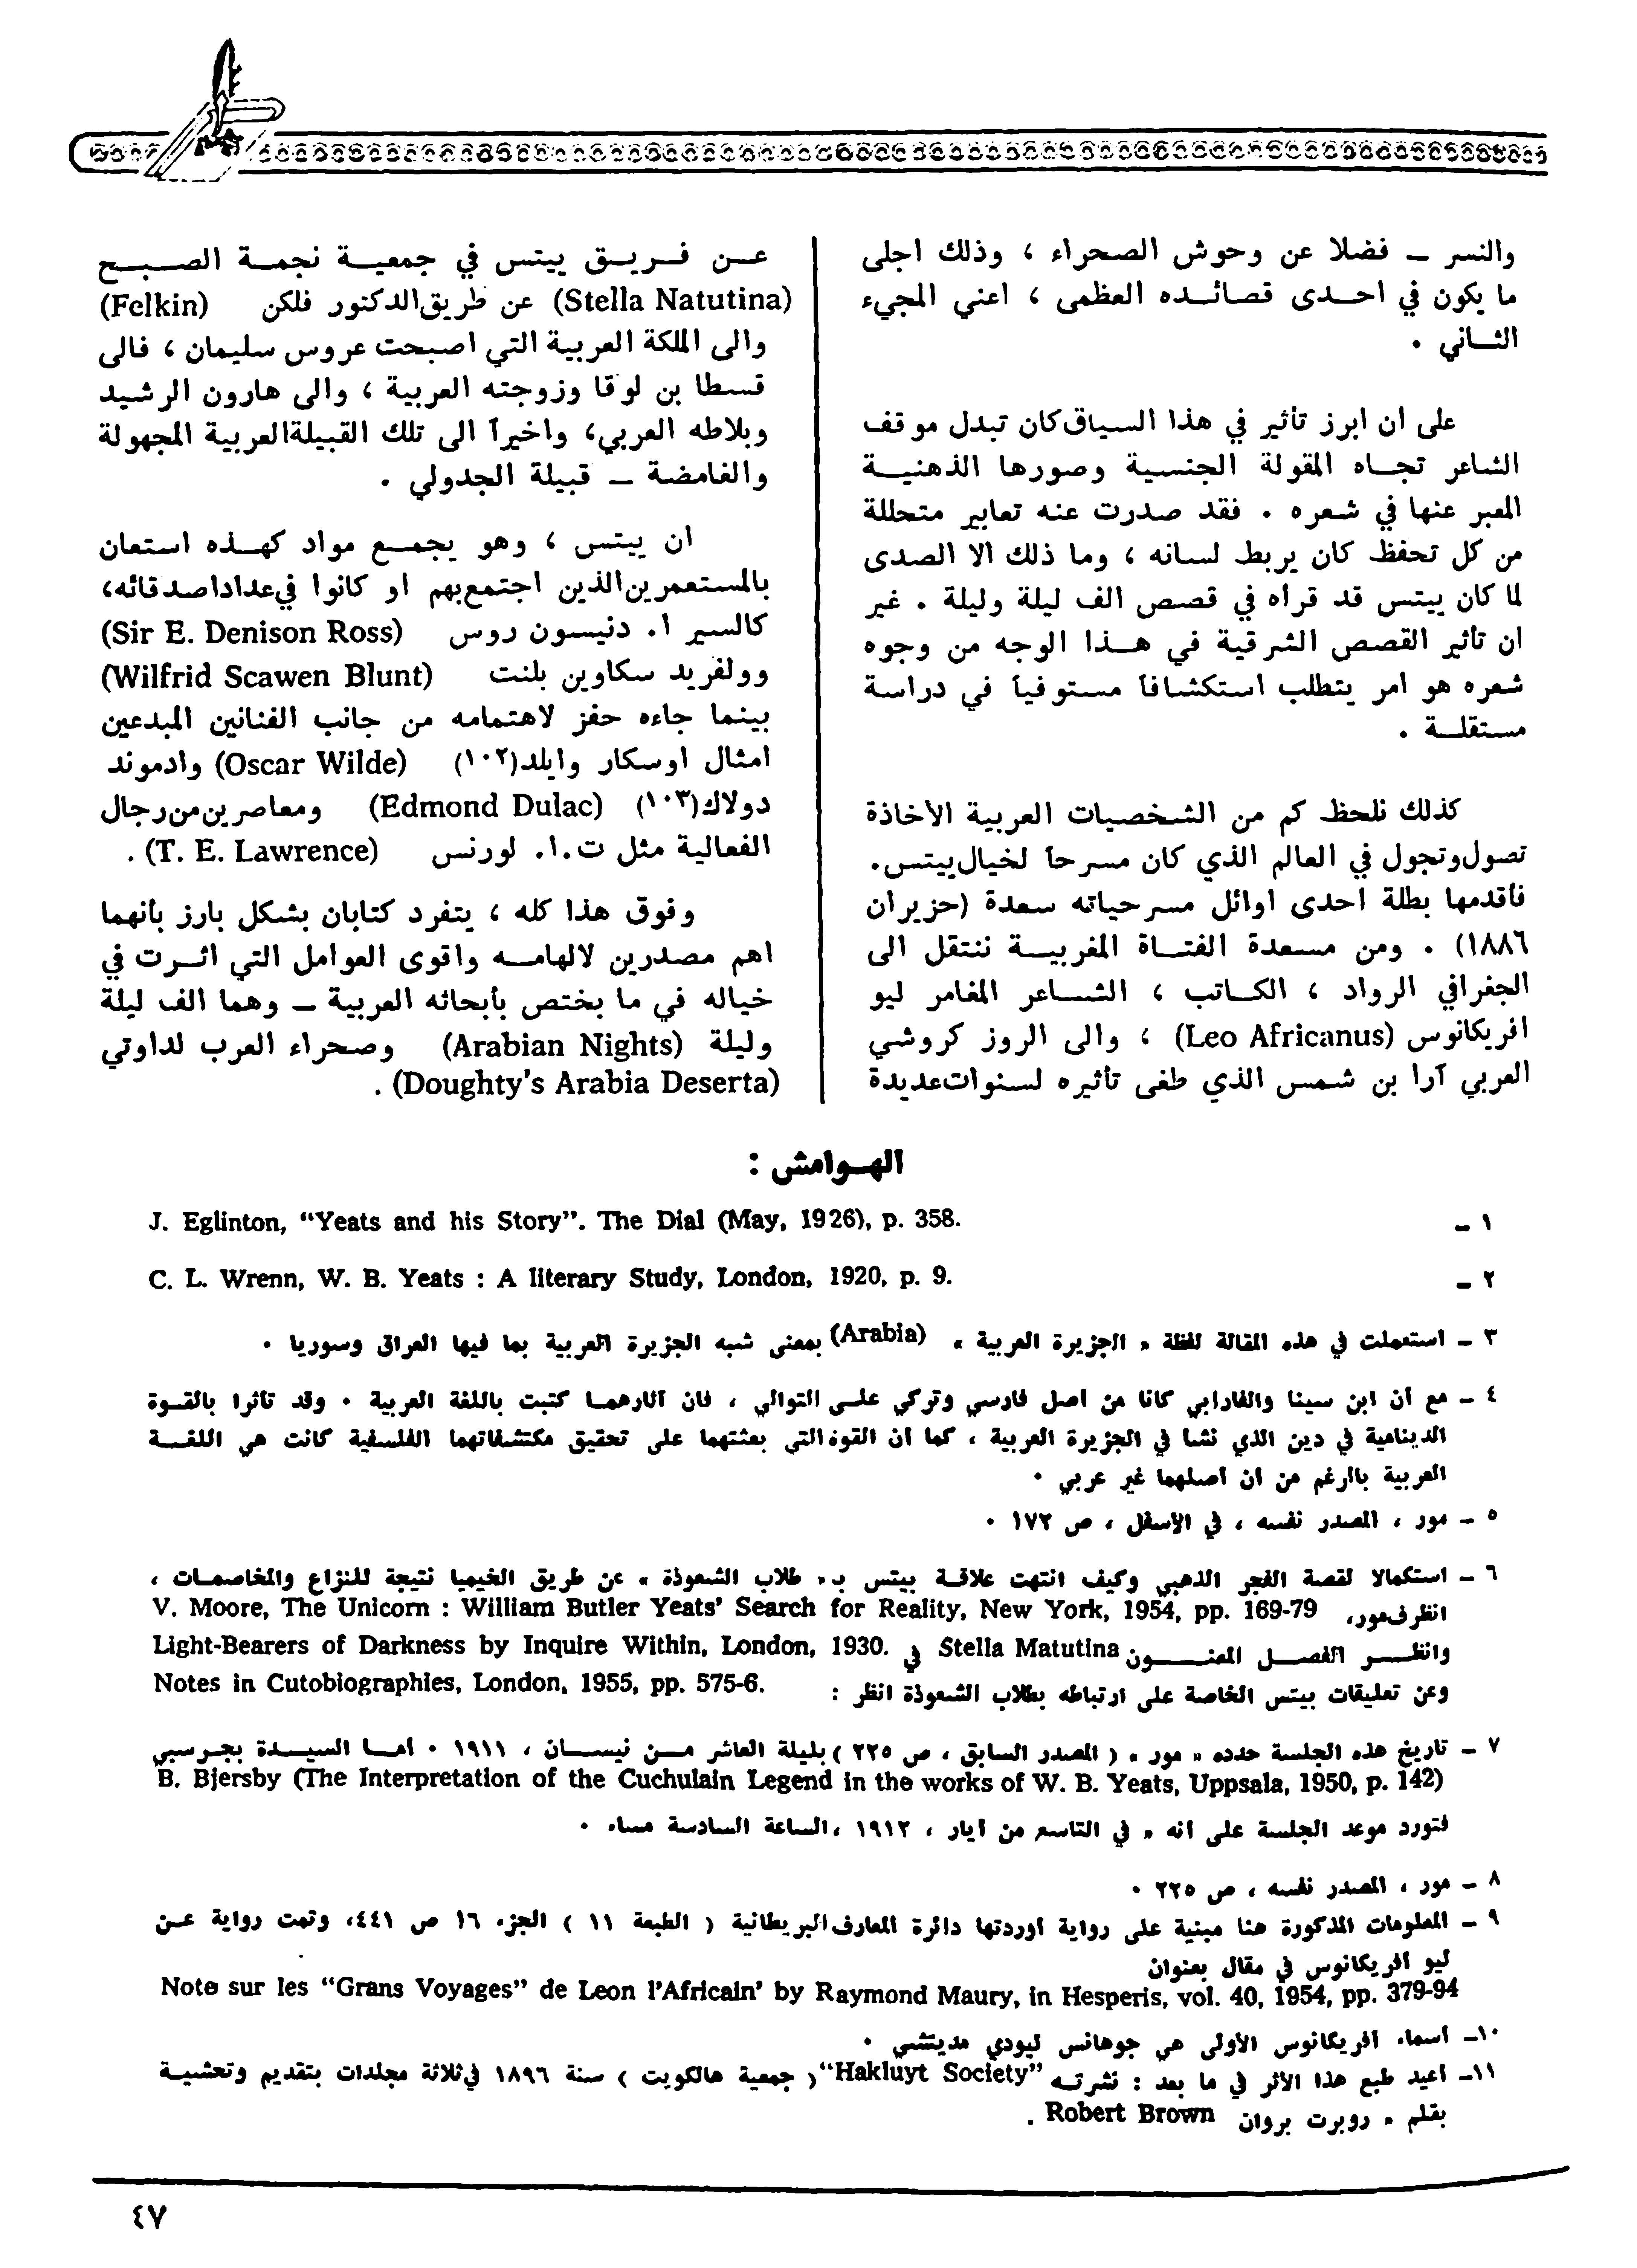 والنسر ــ فضلا عن وحوش الصحراء ، وذلك اجلى
ما يكون في احـدى قصائـده العظمى ، اعني المجيء
الثـاني ٠
على ان ابرز تأثير في هذا السياق كان تبدل موقف
الشاعر تجـاه المقولة الجنسية وصورها الذهنيـة
المعبر عنها في شعره ٠ فقد صدرت عنه تعابير متحللة
من كل تحفظ كان يربط لسانه ، وما ذلك الا الصدى
لما كان ييتس قد قرأه في قصص الف ليلة وليلة ٠ غير
ان تأثير القصص الشرقية في هـذا الوجه من وجوه
شعره هو امر يتطلب استكشافاً مستوفياً في دراسة
مستقلـة ٠
كذلك نلحظ كم من الشخصيات العربية الأخاذة
تصول وتجول في العالم الذي كان مسرحاً لخيال ييتس٠
فأقدمها بطلة احدى اوائل مسرحياته سعدة (حزيران
١٨٨٦) ٠ ومن مسعدة الفتـاة المغربيـة ننتقل الى
الجغرافي الرواد ، الكـاتب ، الشـاعر المغامر ليو
افريكانوس (Leo Africanus) ، والى الروز كروشي
العربي آرا بن شمس الذي طغى تأثيره لسنوات عديدة
عـن فـريـق ييتس في جمعيـة نجمـة الصـبـح
(Stella Natutina) عن طريق الدكتور فلكن (Felkin)
والى الملكة العربية التي اصبحت عروس سليمان ، فالى
قسطا بن لوقا وزوجته العربية ، والى هارون الرشيد
وبلاطه العربي، واخيراً الى تلك القبيلة العربية المجهولة
والغامضة ــ قبيلة الجدولي ٠
ان ييتس ، وهو يجمـع مواد كهـذه استعان
بالمستعمرين الذين اجتمع بهم او كانوا في عداد اصدقائه،
كالسير ا. دنيسون روس (Sir E. Denison Ross)
وولفريد سكاوين بلنت (Wilfrid Scawen Blunt)
بينما جاءه حفز لاهتمامه من جانب الفنانين المبدعين
امثال اوسكار وايلد(١٠٢) (Oscar Wilde) وادموند
دولاك(١٠٣) (Edmond Dulac) ومعاصرين من رجال
الفعالية مثل ت.ا. لورنس (T. E. Lawrence) .
وفوق هذا كله ، يتفرد كتابان بشكل بارز بأنهما
اهم مصدرين لالهامـه واقوى العوامل التي اثـرت في
خياله في ما يختص بأبحاثه العربية ــ وهما الف ليلة
وليلة (Arabian Nights) وصحراء العرب لداوتي
(Doughty's Arabia Deserta) .
الهـوامش :
١ ــ J. Eglinton, "Yeats and his Story". The Dial (May, 1926), p. 358.
٢ ــ C. L. Wrenn, W. B. Yeats : A literary Study, London, 1920, p. 9.
٣ ــ استعملت في هذه المقالة لفظة « الجزيرة العربية » (Arabia) بمعنى شبه الجزيرة العربية بما فيها العراق وسوريا ٠
٤ ــ مع ان ابن سينا والفارابي كانا من اصل فارسي وتركي علـى التوالي ، فان آثارهمـا كتبت باللغة العربية ٠ وقد تأثرا بالقـوة
الدينامية في دين الذي نشأ في الجزيرة العربية ، كما ان القوة التي بعثتهما على تحقيق مكتشفاتهما الفلسفية كانت هي اللغـة
العربية بالرغم من ان اصلهما غير عربي ٠
٥ ــ مور ، المصدر نفسه ، في الأسفل ، ص ١٧٢ ٠
٦ ــ استكمالا لقصة الفجر الذهبي وكيف انتهت علاقـة ييتس بـ« طلاب الشعوذة » عن طريق الخيميا نتيجة للنزاع والمخاصمـات ،
انظر ف مور، V. Moore, The Unicorn : William Butler Yeats' Search for Reality, New York, 1954, pp. 169-79
وانظـر الفصـل المعنـون Stella Matutina في Light-Bearers of Darkness by Inquire Within, London, 1930.
وعن تعليقات ييتس الخاصة على ارتباطه بطلاب الشعوذة انظر : Notes in Cutobiographies, London, 1955, pp. 575-6.
٧ ــ تاريخ هذه الجلسة حدده « مور » ( المصدر السابق ، ص ٢٢٥ ) بليلة العاشر مـن نيسـان ، ١٩١١ ٠ امـا السيـدة بجـرسبي
B. Bjersby (The Interpretation of the Cuchulain Legend in the works of W. B. Yeats, Uppsala, 1950, p. 142)
فتورد موعد الجلسة على انه « في التاسع من ايار ، ١٩١٢ ،الساعة السادسة مساء ٠
٨ ــ مور ، المصدر نفسه ، ص ٢٢٥ ٠
٩ ــ المعلومات المذكورة هنا مبنية على رواية اوردتها دائرة المعارف البريطانية ( الطبعة ١١ ) الجزء ١٦ ص ٤٤١، وتمت رواية عـن
ليو افريكانوس في مقال بعنوان
Note sur les "Grans Voyages" de Leon l'Africain' by Raymond Maury, in Hesperis, vol. 40, 1954, pp. 379-94
١٠ــ اسماء افريكانوس الأولى هي جوهانس ليودي مديتشي ٠
١١ــ اعيد طبع هذا الأثر في ما بعد : نشرتـه "Hakluyt Society" ( جمعية هالكويت ) سنة ١٨٩٦ في ثلاثة مجلدات بتقديم وتحشيـة
بقلم « روبرت بروان Robert Brown .
٤٧